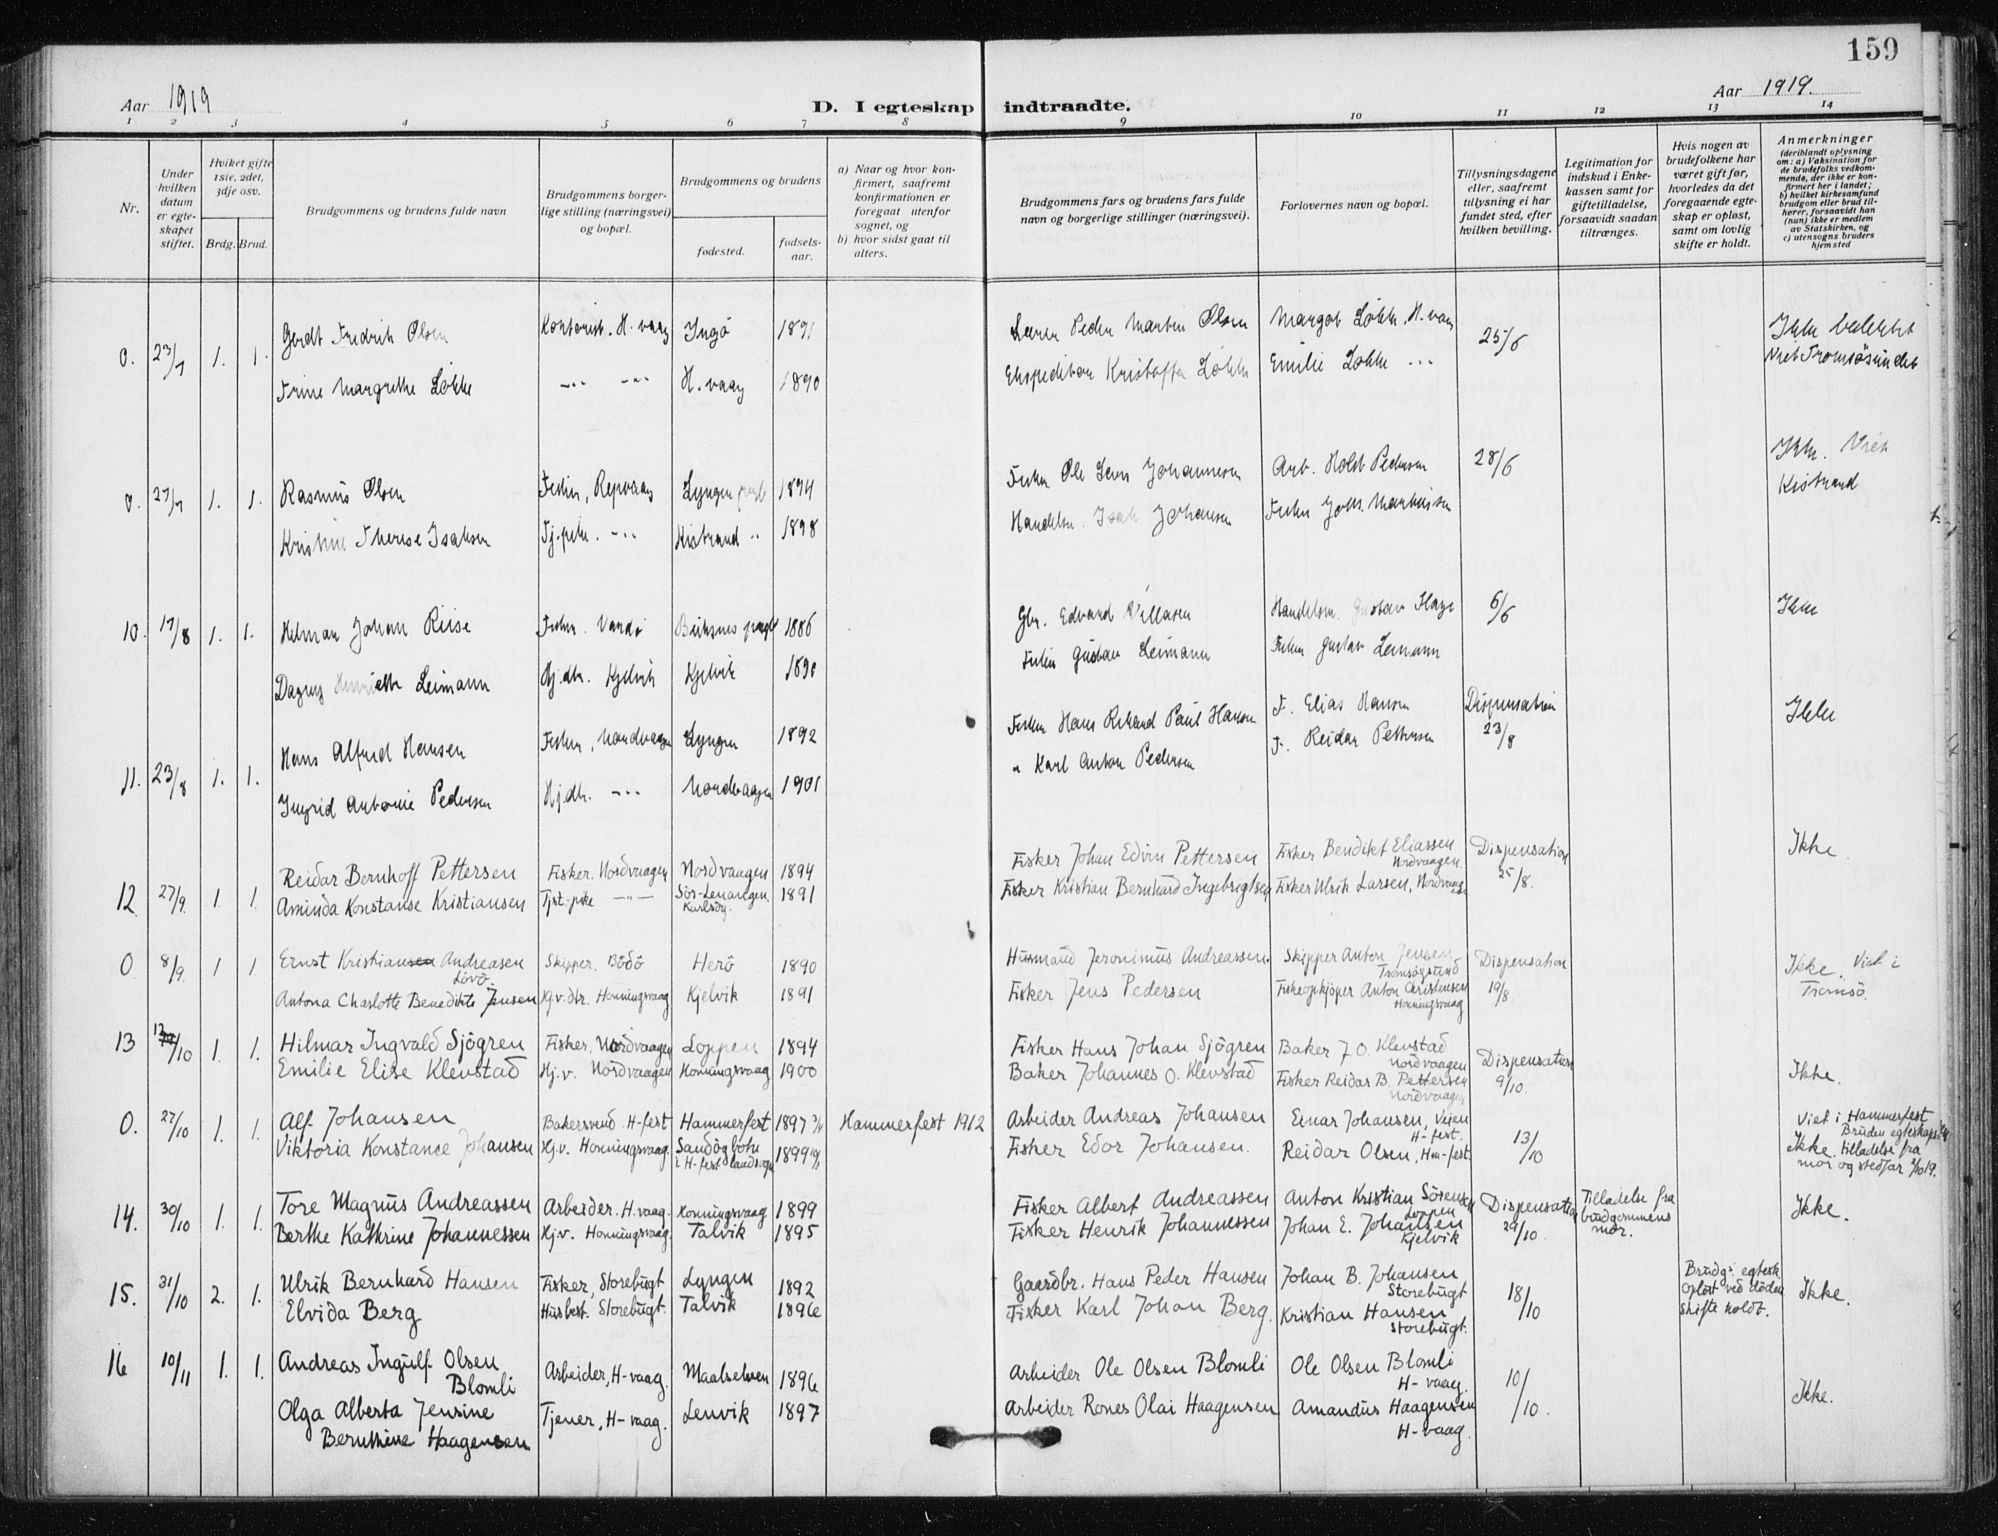 159
Aar 1919
D. I egteskap indtraadte.
Aar 1919.
1 2 3 4 5 6 7 8 9 10 11 12 13 14
Nr.
Under
hvilken
datum
er egte-
skapet
stiftet.
Hviket gifte
1ste, 2det,
3dje osv.
Brdg. Brud.
Brudgommens og brudens fulde navn
Brudgommens borger-
lige stilling (næringsvei)
og bopæl.
Brudgommens og brudens
fødested.
fødsels-
aar.
a) Naar og hvor kon-
firmert, saafremt
konfirmationen er
foregaat utenfor
sognet, og
b) hvor sidst gaat til
alters.
Brudgommens fars og brudens fars fulde
navn og borgerlige stillinger (næringsvei).
Forlovernes navn og bopæl.
Tillysningsdagene
eller, saafremt
tillysning ei har
fundet sted, efter
hvilken bevilling.
Legitimation for
indskud i Enke-
kassen samt for
giftetilladelse,
forsaavidt saadan
tiltrænges.
Hvis nogen av
brudefolkene har
været gift før,
hvorledes da det
foregaaende egte-
skap er opløst,
samt om lovlig
skifte er holdt.
Anmerkninger
(deriblandt oplysning
om: a) Vaksination for
de brudefolks vedkom-
mende, der ikke er kon-
firmert her i landet;
b) hvilket kirkesamfund
brudgom eller brud til-
hører, forsaavidt han
(hun) ikke er medlem
av Statskirken, og
c) utensogns bruders
hjemsted
0. 23/7 1. 1. Gerdt Fredrik Olsen Kontorist. H. vaag Ingö 1891 Lærer Peder Martin Olsen Margot Løkke, H. vaag 25/6 Ikke
Viet Tromsösundet
Trine Margrethe Løkke -"- -"- H. vaag 1890 Ekspeditør Kristoffer Løkke Emilie Løkke
0. 27/7 1. 1. Rasmus Olsen Fisker, Repvaag Lyngen 1894 Fisker Ole Johannesen Arb. Holst Pedersen 28/6 Ikke. Viet
Kistrand
Kristine Therese Isaksen Tj.pike. -"- Kistrand " 1898 Handelsm. Isak Johansen Fisker Johs. Martinsen
10. 17/8 1. 1. Hilmar Johan Riise Fisker. Vardö 1886 Gbr. Edvard Handelsm. Gustav 6/6 Ikke
Dagny Henriette Leimann Hj.dtr. Kjelvik Kjelvik 1890 Fisker Gustav Leimann Fisker Gustav Leimann
11. 23/8 1. 1. Hans Alfred Hansen Fisker, Nordvaagen Lyngen 1892 Fisker Hans Rikard Paul Hansen F. Elias Hansen Dispensation
23/8 Ikke
Ingrid Antonie Pedersen Hj.dtr. -"- Nordvaagen 1901 " Karl Anton Pedersen F. Reidar Pettersen
12. 27/9. 1. 1. Reidar Bernhoff Pettersen Fisker. Nordvaagen Nordvaagen 1894 Fisker Johan Edvin Pettersen Fisker Bendikt Eliassen
Nordvaagen. Dispensation
25/8. Ikke.
Aminda Konstanse Kristiansen Tjst.-pike -"- Sör-Lenangen.
Karlsöy. 1891 Fisker Kristian Bernhard Ingebrigtsen Fisker Ulrik Larsen, Nordvaagen
0. 8/9. 1 1 Ernst Kristian Andreasen
Lovö. Skipper. Bödö Herö 1890 Husmand Jeronimus Andreassen. Skipper Anton Jensen
Tromsöysund Dispensation
19/8. Ikke. Viet i
Tromsö.
Antona Charlotte Benedikte Jensen Hj.v.dtr. Honningsvaag Kjelvik 1891 Fisker Jens Pedersen Fiskeopkjöper Anton Christensen
Honningsvaag
13 12/10 1. 1. Hilmar Ingvald Sjögren Fisker. Nordvaagen Loppen 1894 Fisker Hans Johan Sjögren Baker J. O. Klevstad
Nordvaagen Dispensation
9/10. Ikke.
Emilie Elise Klevstad Hj.v. Nordvaagen Honningsvaag 1900 Baker Johannes O. Klevstad Fisker Reidar B. Pettersen
Nordvaagen
0. 27/10 1. 1. Alf Johansen Bakersvend H-fest Hammerfest 1897 Hammerfest 1912 Arbeider Andreas Johansen Einar Johansen, Veien
H-fest. 13/10 Viet i Hammerfest
Bruden egteskaps
Ikke. tilladelse fra
mor og stedfar 2/10 19.
Viktoria Konstance Johansen Hj.v. Honningsvaag. Sandögbotn
i H-fest landsogn 1899 Fisker Edor Johansen. Reidar Olsen, Hm-fest
14. 30/10 1. 1. Tore Magnus Andreassen Arbeider. H.vaag. Honningsvaag 1899 Fisker Albert Andreassen Anton Kristian Sörensen
Loppen Dispensation
29/10. Tilladelse fra
brudgommens
mor. Ikke.
Berthe Kathrine Johannessen Hj.v. Honningsvaag. Talvik 1895 Fisker Henrik Johannessen Johan E. Johansen
Kjelvik
15. 31/10 2. 1. Ulrik Bernhard Hansen Fisker, Storebugt Lyngen 1892 Gaardbr. Hans Peder Hansen Johan B. Johansen
Storebugt 18/10 Brudg. egtesk.
oplöst ved döden
Skifte holdt. Ikke.
Elvida Berg Husbest. Storebugt. Talvik 1896 Fisker Karl Johan Berg. Kristian Hansen
Storebugt.
16 10/11 1. 1. Andreas Ingulf Olsen
Blomli Arbeider, H-vaag. Maalselven 1896 Arbeider Ole Olsen Blomli Ole Olsen Blomli
H-vaag. 10/10. Ikke.
Olga Alberta Jensine
Bernthine Haagensen Tjener, H-vaag. Lenvik 1897 Arbeider Rones Olai Haagensen Amandus Haagensen
H-vaag.